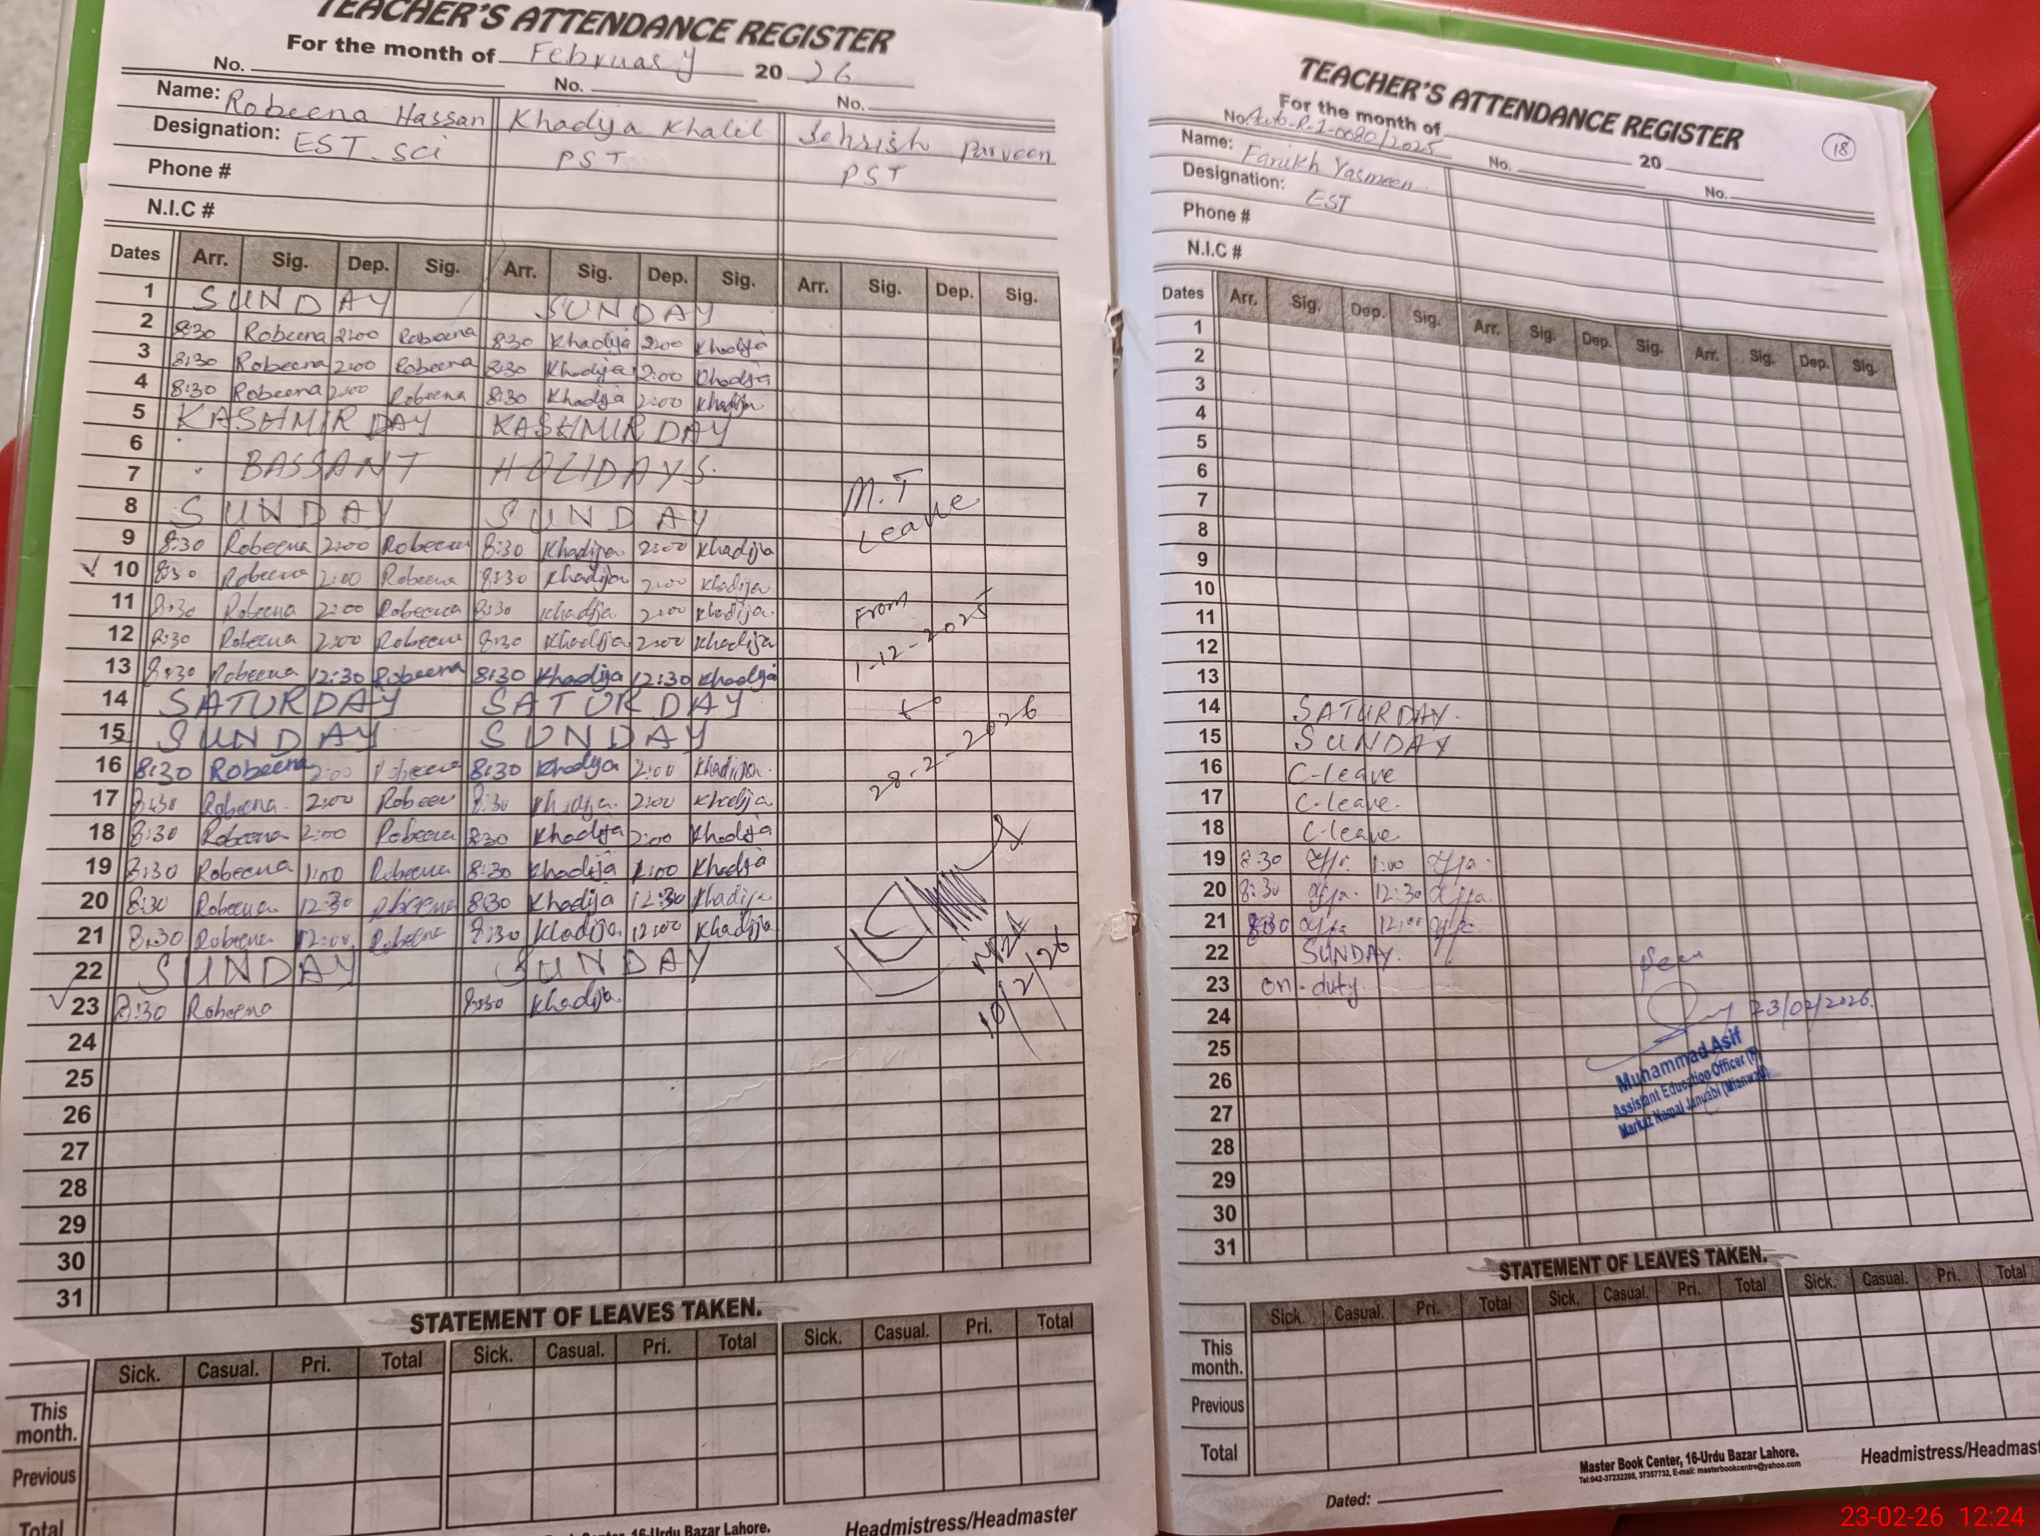 TEACHER'S ATTENDANCE REGISTER
For the month of February 20 26
No. No. No.
Name: Robeena Hassan Khadija Khalil Sehrish Parveen
Designation: EST Sci PST PST
Phone #
N.I.C #
Dates Arr. Sig. Dep. Sig. Arr. Sig. Dep. Sig. Arr. Sig. Dep. Sig.
1 SUNDAY SUNDAY
2 8:30 Robeena 2:00 Robeena 8:30 Khadija 2:00 Khadija
3 8:30 Robeena 2:00 Robeena 8:30 Khadija 2:00 Khadija
4 8:30 Robeena 2:00 Robeena 8:30 Khadija 2:00 Khadija
5 KASHMIR DAY KASHMIR DAY
6
7 BASSANT HOLIDAYS
8 SUNDAY SUNDAY
9 8:30 Robeena 2:00 Robeena 8:30 Khadija 2:00 Khadija
10 8:30 Robeena 2:00 Robeena 8:30 Khadija 2:00 Khadija
11 8:30 Robeena 2:00 Robeena 8:30 Khadija 2:00 Khadija
12 8:30 Robeena 2:00 Robeena 8:30 Khadija 2:00 Khadija
13 8:30 Robeena 12:30 Robeena 8:30 Khadija 12:30 Khadija
14 SATURDAY SATURDAY
15 SUNDAY SUNDAY
16 8:30 Robeena 2:00 Robeena 8:30 Khadija 2:00 Khadija
17 8:30 Robeena 2:00 Robeena 8:30 Khadija 2:00 Khadija
18 8:30 Robeena 2:00 Robeena 8:30 Khadija 2:00 Khadija
19 8:30 Robeena 1:00 Robeena 8:30 Khadija 1:00 Khadija
20 8:30 Robeena 12:30 Robeena 8:30 Khadija 12:30 Khadija
21 8:30 Robeena 12:00 Robeena 8:30 Khadija 12:00 Khadija
22 SUNDAY SUNDAY
23 8:30 Robeena 8:30 Khadija
24
25
26
27
28
29
30
31
M.T
Leave
From
1-12-2025
to
28-2-2026
10/2/26
STATEMENT OF LEAVES TAKEN.
Sick. Casual. Pri. Total Sick. Casual. Pri. Total Sick. Casual. Pri. Total
This month.
Previous
Total
16-Urdu Bazar Lahore.
Headmistress/Headmaster
TEACHER'S ATTENDANCE REGISTER
18
For the month of 20
No. No. No.
Name: Farrukh Yasmeen
Designation: EST
Phone #
N.I.C #
Dates Arr. Sig. Dep. Sig. Arr. Sig. Dep. Sig. Arr. Sig. Dep. Sig.
1
2
3
4
5
6
7
8
9
10
11
12
13
14 SATURDAY
15 SUNDAY
16 C-leave
17 C-leave
18 C-leave
19 8:30 1:00
20 8:30 12:30
21 8:30 12:00
22 SUNDAY
23 on-duty
24
25
26
27
28
29
30
31
Seen
23/02/2026
Muhammad Asif
Assistant Education Officer
Markaz Namal Janubi (Mianwali)
STATEMENT OF LEAVES TAKEN.
Sick. Casual. Pri. Total Sick. Casual. Pri. Total Sick. Casual. Pri. Total
This month.
Previous
Total
Master Book Center, 16-Urdu Bazar Lahore.
Headmistress/Headmast
Dated:
23-02-26 12:24